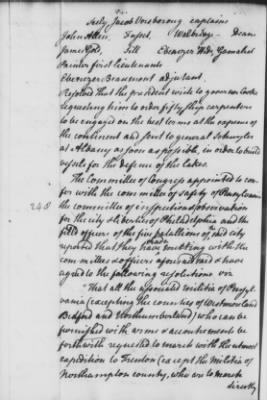 Seely Jacob Vosborong captains
John Allen, Fassit, Walbridge Dean
James Gold, Gill Ebenezer Wds Gamaliel
Painter first lieutenants
Ebenezer Beaumont adjutant.
Resolved that the president write to governor Cooke
requesting him to order fifty ship carpenters
to be engaged on the best terms at the expence of
the continent and sent to general Schuyler
at Albany as soon as possible, in order to build
vessels for the defence of the lakes
The Committee of Congress appointed to con
fer with the committee of safety of Pensylvania
the committee of inspection & observation
for the city & liberties of Philadelphia and the
248
field officers of the five battallions of the said city
reported that they have had a meeting with the
committees & officers aforesaid and have
agreed to the following resolutions viz
That all the associated militia of Pensyl
vania (excepting the counties of Westmoreland
Bedford and Northumberland) who can be
furnished with arms & accoutrements be
forthwith requested to march with the utmost
expedition to Trenton (except the militia of
Northampton county, who are to march
directly